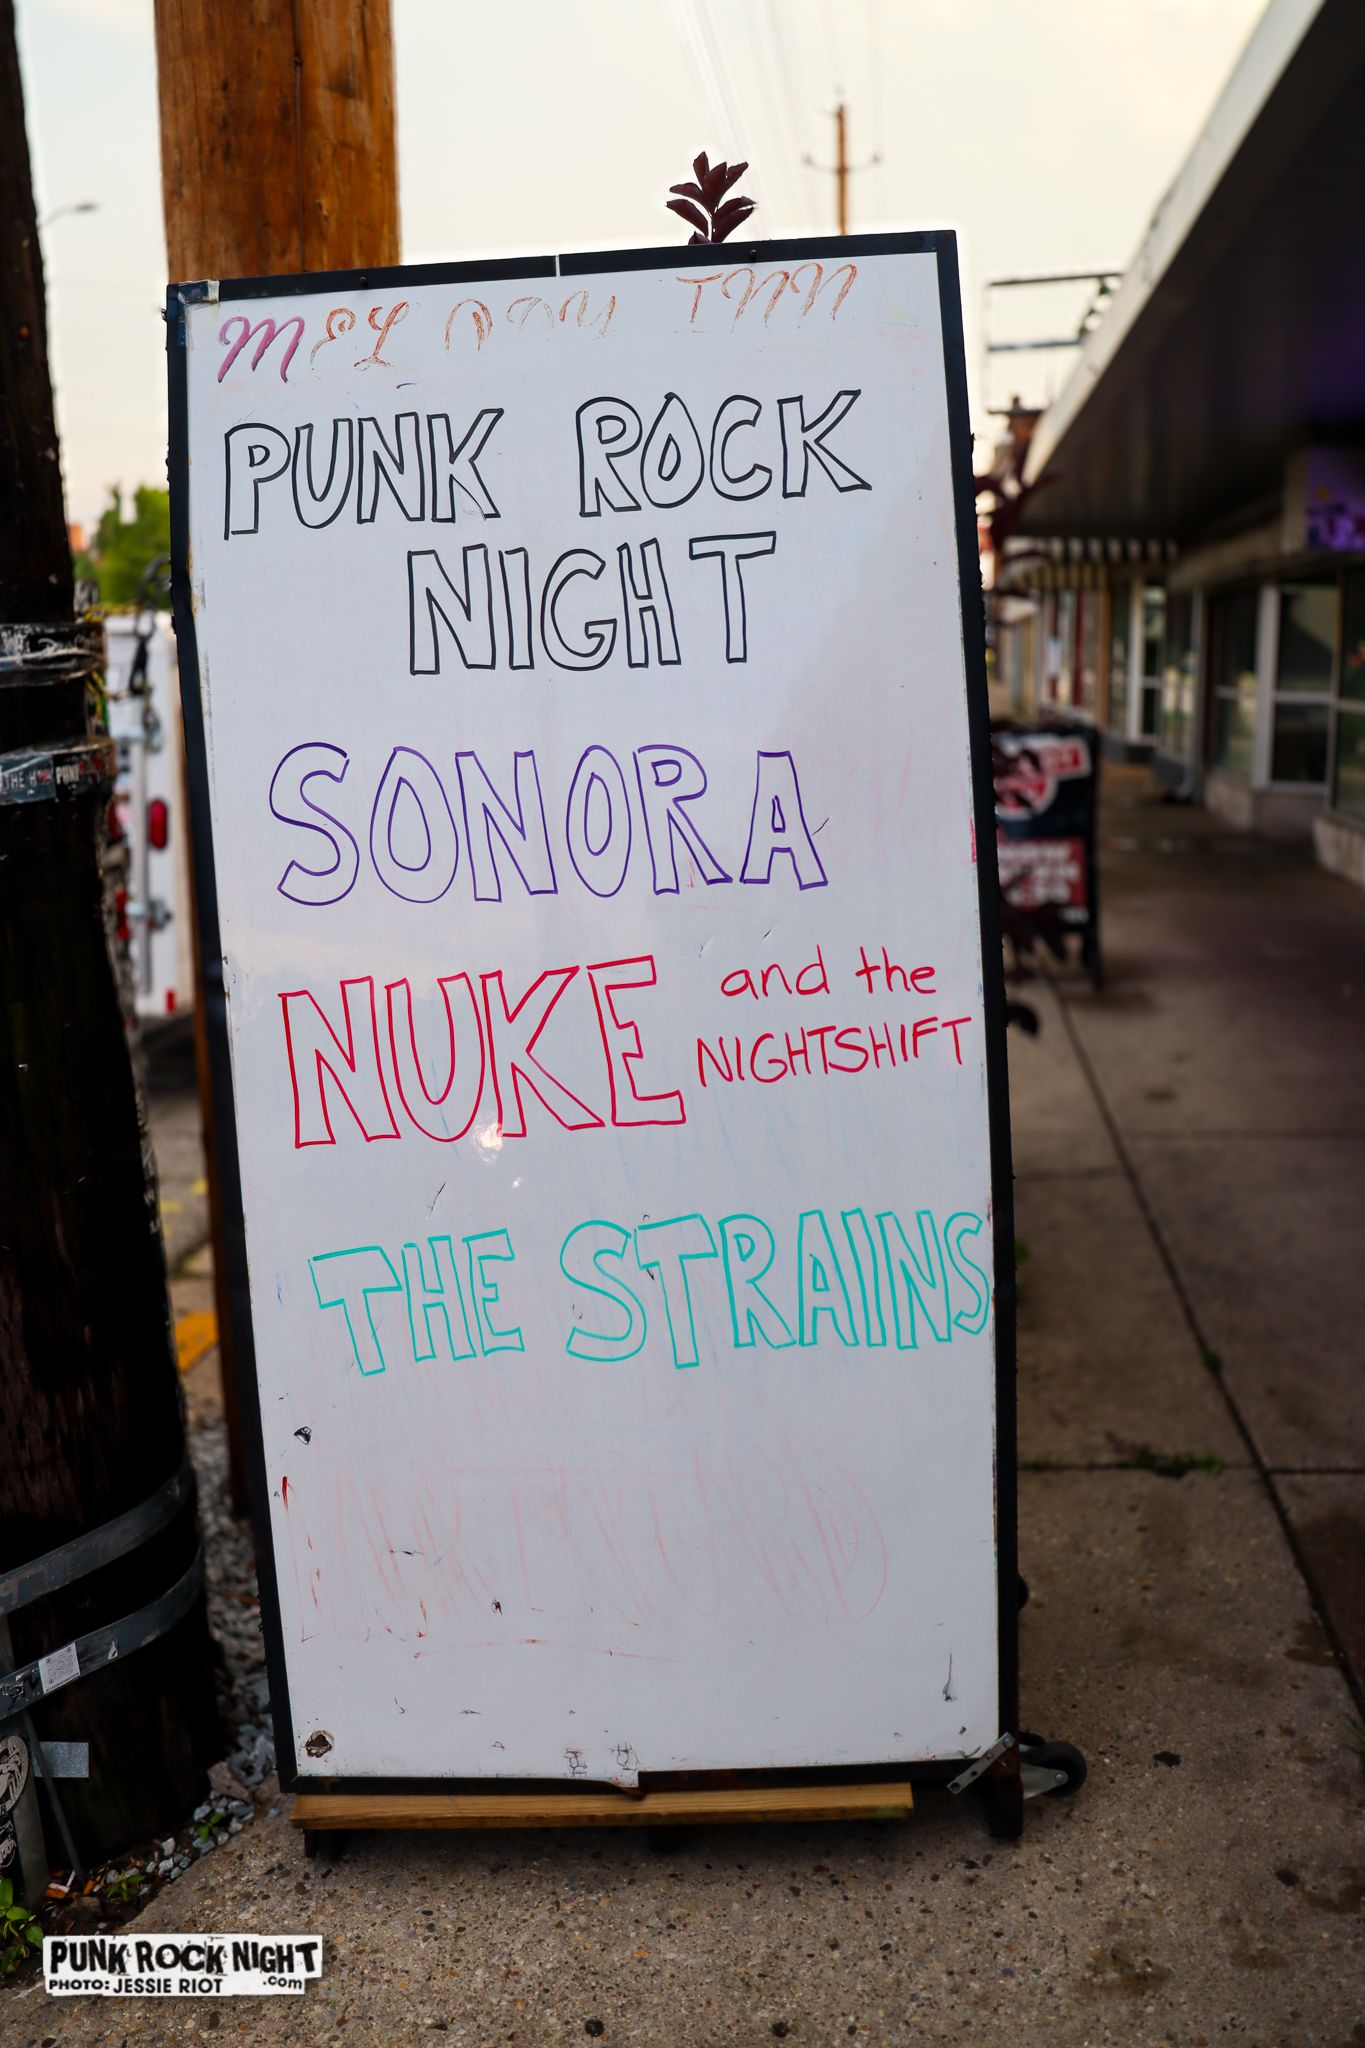 MELODY INN
PUNK ROCK
NIGHT
SONORA
NUKE and the
NIGHTSHIFT
THE STRAINS
PUNK ROCK NIGHT
.com
PHOTO: JESSIE RIOT